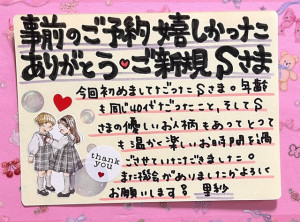 事前のご予約嬉しかった
ありがとう♥ご新規Sさま
今回初めましてだったSさま。年齢
も同じ40代だったこと、そしてS
さまの優しいお人柄もあってとって
も温かく楽しいお時間を過
ごさせていただきました。
また機会がありましたらよろしく
お願いします! 里紗
thank
you